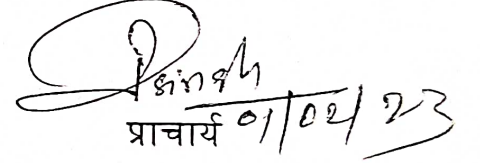 Psingh
प्राचार्य 01/02/23